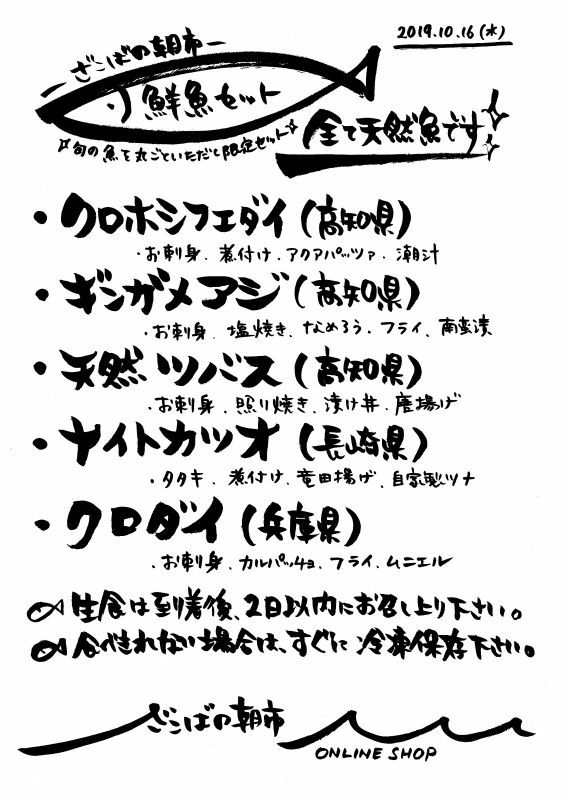 2019.10.16(水)
ざこばの朝市
鮮魚セット
旬の魚を丸ごといただく限定セット
全て天然魚です!
・クロホシフエダイ(高知県)
・お刺身、煮付け、アクアパッツァ、潮汁
・ギンガメアジ(高知県)
・お刺身、塩焼き、なめろう、フライ、南蛮漬
・天然ツバス(高知県)
・お刺身、照り焼き、漬け丼、唐揚げ
・ナイトカツオ(長崎県)
・タタキ、煮付け、竜田揚げ、自家製ツナ
・クロダイ(兵庫県)
・お刺身、カルパッチョ、フライ、ムニエル
生食は到着後、2日以内にお召し上り下さい。
食べきれない場合は、すぐに冷凍保存下さい。
ざこばの朝市
ONLINE SHOP